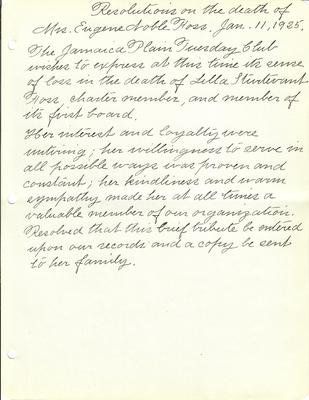 Resolutions on the death of
Mrs. Eugene Noble Foss. Jan. 11, 1925.
The Jamaica Plain Tuesday Club
wishes to express at this time its sense
of loss in the death of Lilla Sturtevant
Foss charter member, and member of
its first board.
Her interest and loyalty were
untiring; her willingness to serve in
all possible ways was proven and
constant; her kindliness and warm
sympathy made her at all times a
valuable member of our organization.
Resolved that this brief tribute be entered
upon our records and a copy be sent
to her family.